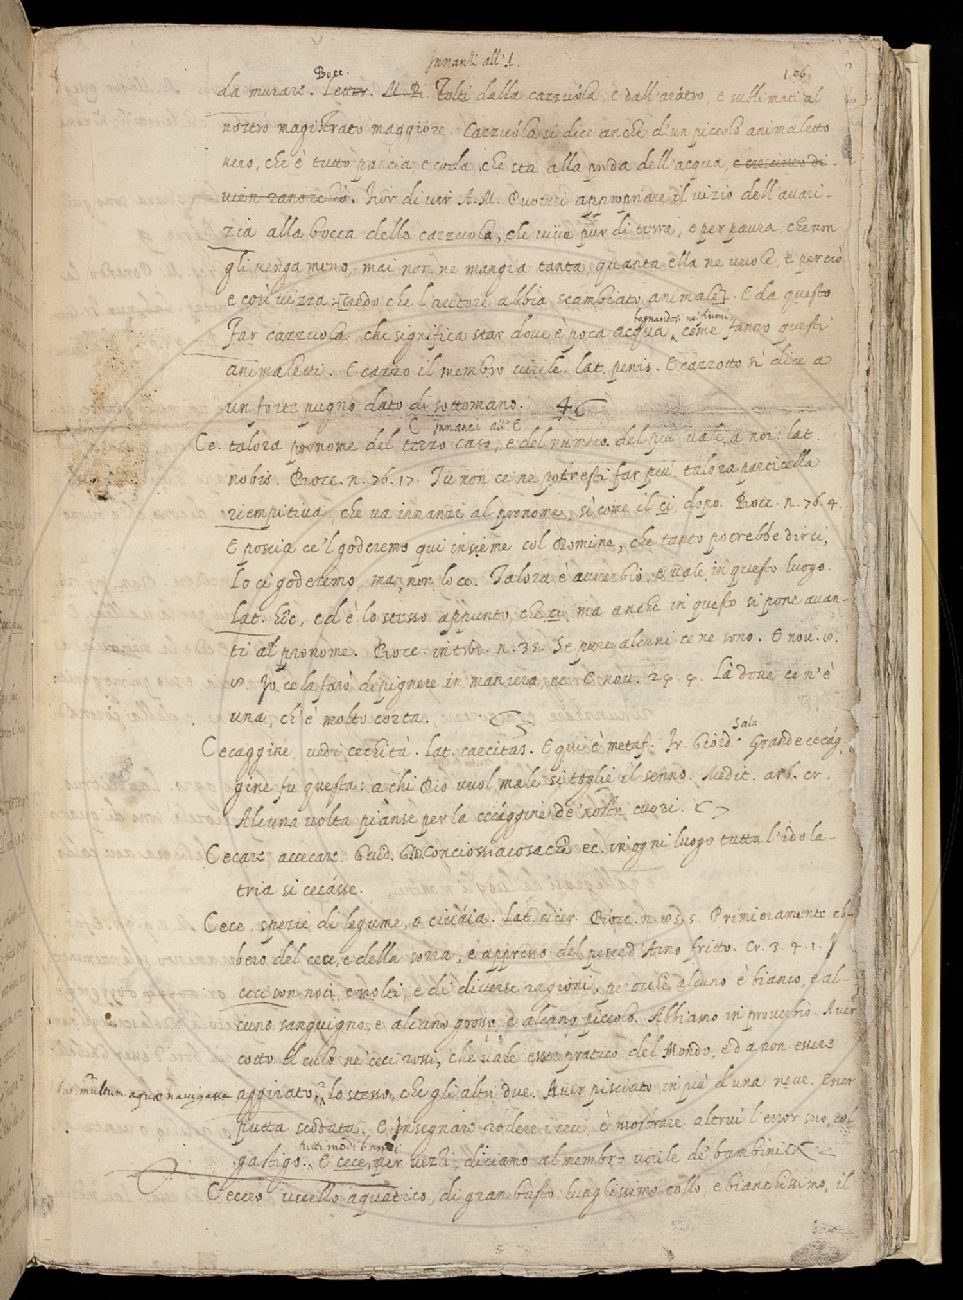 Innanzi all' A.
106
da murare. Bocc. Lett. Tolti dalla cazzuola, e dall'aratro, e sublimati al
nostro magistrato maggiore. Cazzuola si dice anche d'un piccolo animaletto
nero, che è tutto pancia e coda, che sta alla proda dell'acqua, e crescendo di
vien ranocchio. Fior di vir. A. M. Puotesi appropriare il vizio dell'avari-
zia alla bocca della cazzuola, che vive pur di terra, e per paura, che non
gli venga meno, mai non ne mangia tanta, quanta ella ne vuole, e perciò
e così vizza: [credo che l'autore abbia scambiato animale]. E da questo
Far cazzuola, che significa star dove è poca acqua, come fanno questi
animaletti. E cazzo il membro virile. lat. penis. E cazzotto si dice a
un forte pugno dato di sottomano.
C innanzi all' E
Ce. talora pronome del terzo caso, e del numero del più vale a noi: lat.
nobis. Bocc. n. 76. 17. Tu non ce ne potresti far più. talora particella
riempitiva, che va innanzi al pronome, sì come il ci dopo. Bocc. n. 76. 4.
E poscia ce 'l goderemo qui insieme col Domine, che tanto potrebbe dirci,
lo ci goderemo, ma non lo ce. Talora è avverbio, e vale, in questo luogo.
Lat. hic, ed è lo stesso appunto, che ci, ma anche in questo si pone avan-
ti al pronome. Bocc. introd. n. 35. Se pure alcuni ce ne sono. E nov.
Io ce la farò dipignere in maniera, ec. E nov. Là dove ce n'è
una, ch'è molto corta.
Cecaggine vedi cechità. lat. caecitas. E qui è metaf. Fr. Giord. Salv. Grande cecag-
gine fu questa: a chi Dio vuol male si toglie il senno. Medit. arb. cr.
Alcuna volta pianse per la cecaggine de' nostri cuori.
Cecare accecare. Guid. G. Conciossiacosachè ec. in ogni luogo tutta l'idola-
tria si cecasse.
Cece, spezie di legume, e civaia. Lat. cicer. Bocc. Primieramente eb-
bero del cece, e della sorra, e appresso del pesce d'Arno fritto. Cr. 3. 4. 1. I
ceci son noti, e molti, e di diverse ragioni, perocchè alcuno è bianco, e al-
cuno sanguigno, e alcuno grosso, e alcuno piccolo. Abbiamo in proverbio. Aver
cotto il culo ne' ceci rossi, che vale esser pratico del Mondo, ed a non essere
aggirato, lo stesso, che gli altri due. Aver pisciato in più d'una neve. Esser
multum aquae navigasse
putta scodata. E insegnare rodere i ceci, è mostrare altrui l'error suo, col
gastigo. tutti modi bassi E cece, per vezzi, diciamo al membro virile de' bambini.
Cecero, uccello aquatico, di gran busto, lunghissimo collo, e bianchissimo, il